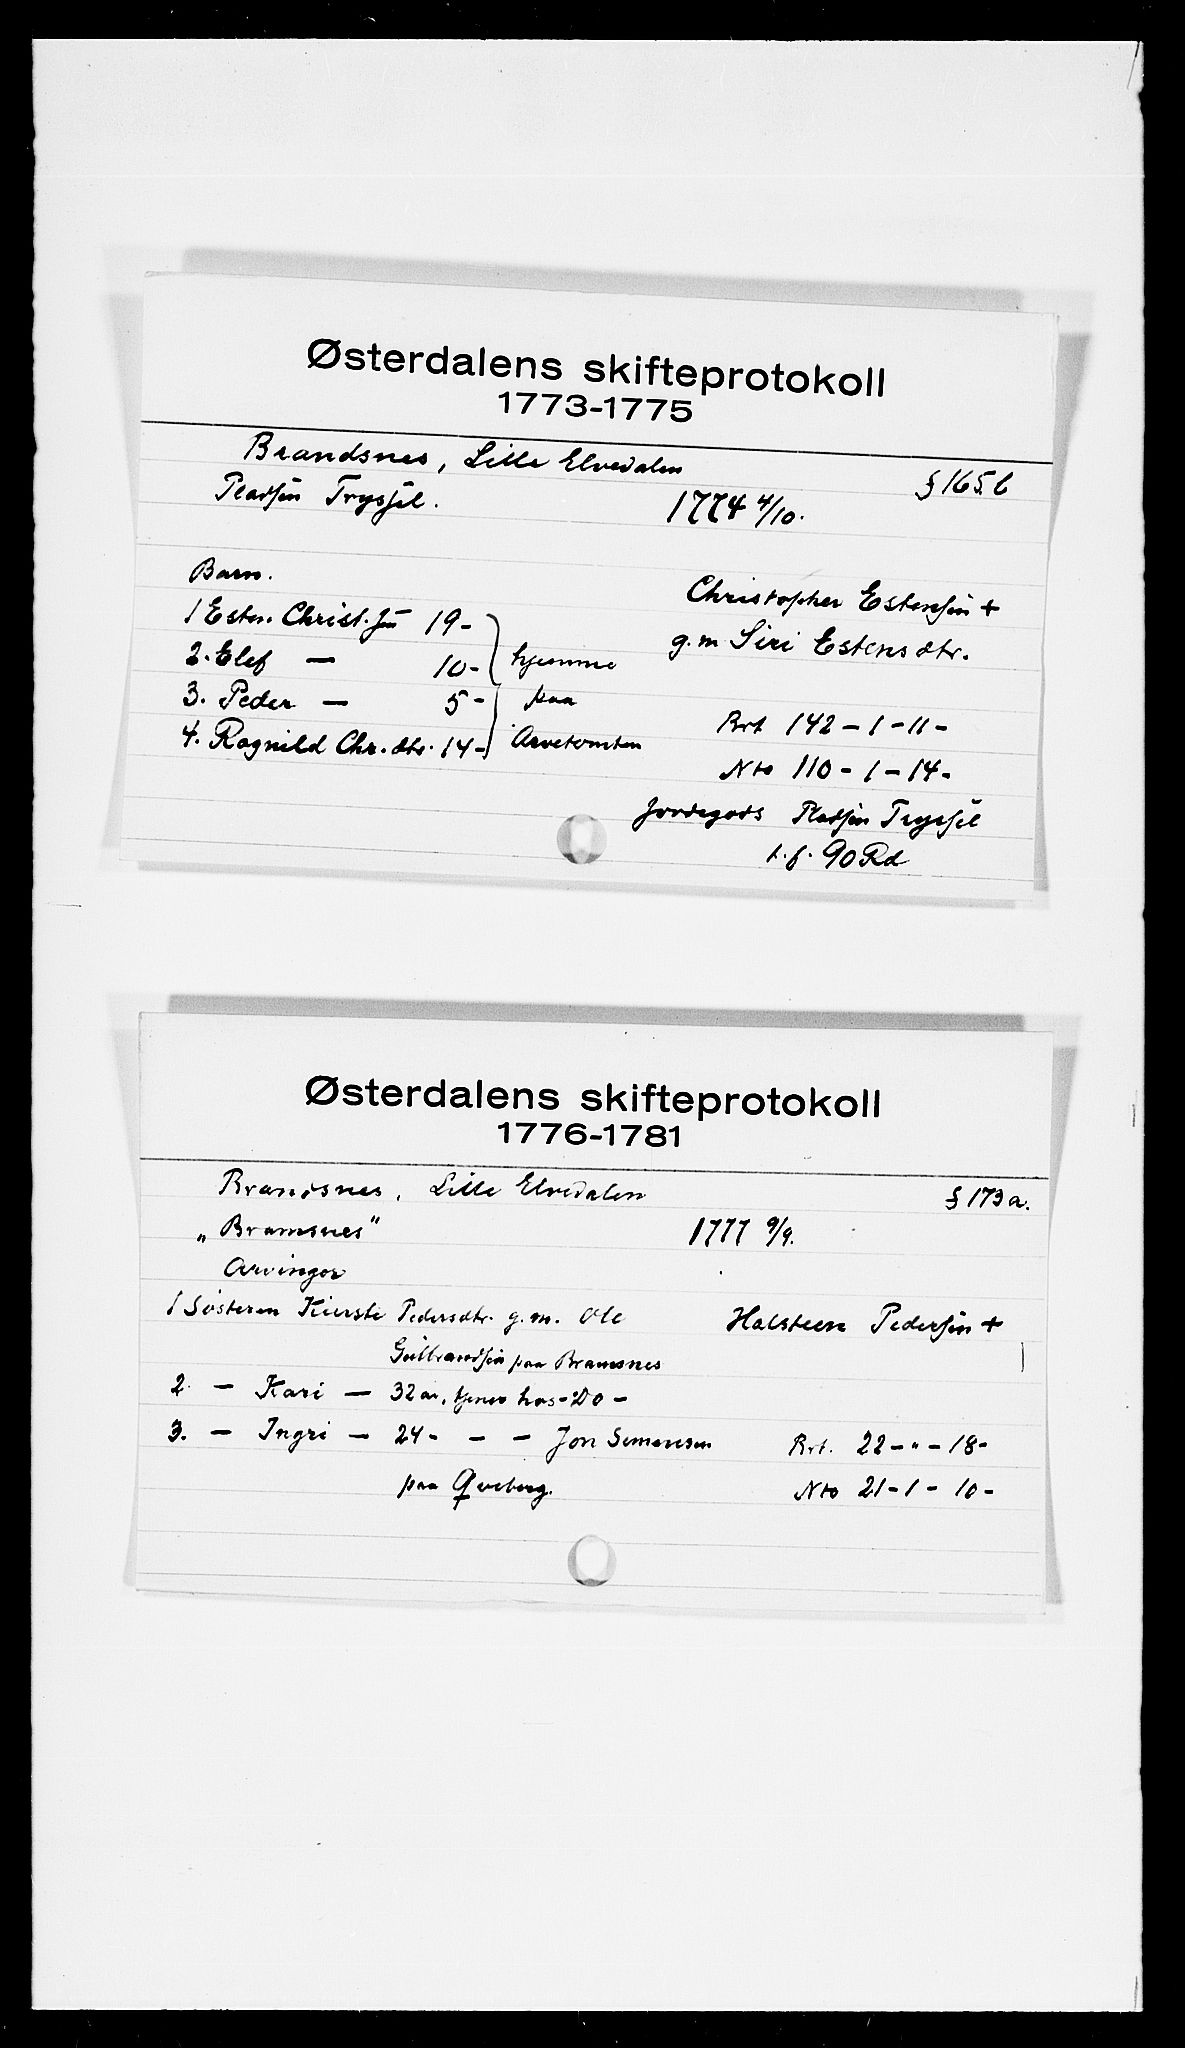 Østerdalens skifteprotokoll
1773-1775
Brandsnes, Lille Elvedalen § 165 b
Pladsen Trysjil. 1774 4/10.
Barn.
Christopher Estensøn +
1 Esten Christ.søn 19-
g.m Siri Estensdtr.
2. Elef — 10- hjemme
3. Peder — 5- paa
Brt 142-1-11-
4. Ragnild Chr.dtr. 14- Arvetomten
Nto 110-1-14-
Jordegods Pladsen Trysjil
t.f. 90 Rd
Østerdalens skifteprotokoll
1776-1781
Brandsnes, Lille Elvedalen § 173 a.
„Bramsnes" 1777 9/9.
Arvinger
1 Søsteren Kierste Pedersdtr. g.m. Ole Halsteen Pedersøn +
Gulbrandsøn paa Bramsnes
2. — Kari — 32 år, tjener hos - Do -
3. — Ingri — 24 - - - Jon Simensen Brt. 22-"-18-
paa Qveberg. Nto 21-1-10-